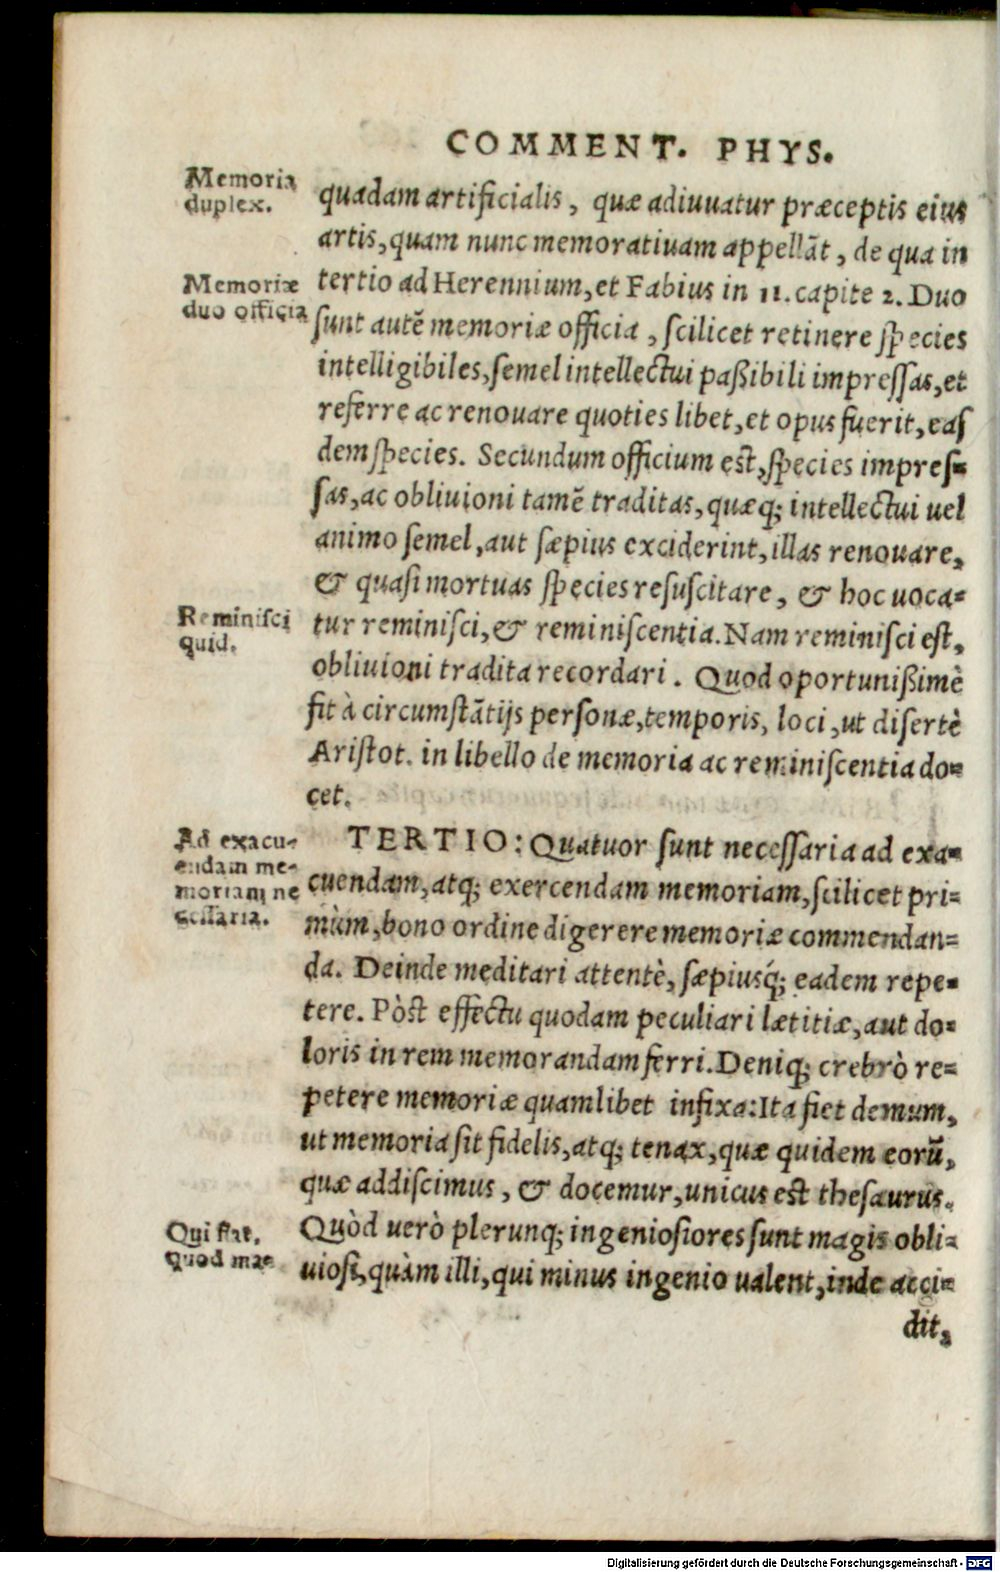 COMMENT. PHYS.
Memoria
duplex.
quadam artificialis, quæ adiuuatur præceptis eius
artis, quam nunc memoratiuam appellāt, de qua in
Memoriæ
duo officia
tertio ad Herennium, et Fabius in 11. capite 2. Duo
ſunt autē memoriæ officia, ſcilicet retinere ſpecies
intelligibiles, ſemel intellectui paßibili impreſſas, et
referre ac renouare quoties libet, et opus fuerit, eaſ
dem ſpecies. Secundum officium eſt, ſpecies impreſ=
ſas, ac obliuioni tamē traditas, quæq; intellectui uel
animo ſemel, aut ſæpius exciderint, illas renouare,
& quaſi mortuas ſpecies reſuſcitare, & hoc uoca=
Reminiſci
quid.
tur reminiſci, & reminiſcentia. Nam reminiſci eſt,
obliuioni tradita recordari. Quod oportunißimè
fit à circumſtātijs perſonæ, temporis, loci, ut diſertè
Ariſtot. in libello de memoria ac reminiſcentia do=
cet.
Ad exacu-
endam me-
moriam ne
ceſſaria.
TERTIO: Quatuor ſunt neceſſaria ad exa=
cuendam, atq; exercendam memoriam, ſcilicet pri=
mùm, bono ordine digerere memoriæ commendan=
da. Deinde meditari attentè, ſæpiusq́; eadem repe=
tere. Pòſt effectu quodam peculiari lætitiæ, aut do=
loris in rem memorandam ferri. Deniq; crebrò re=
petere memoriæ quamlibet infixa: Ita fiet demum,
ut memoria ſit fidelis, atq; tenax, quæ quidem eorū,
quæ addiſcimus, & docemur, unicus eſt theſaurus.
Qui fiat,
quod
Quòd uerò plerunq; ingenioſiores ſunt magis obli=
uioſi, quàm illi, qui minus ingenio ualent, inde acci=
dit,
Digitalisierung gefördert durch die Deutsche Forschungsgemeinschaft - DFG